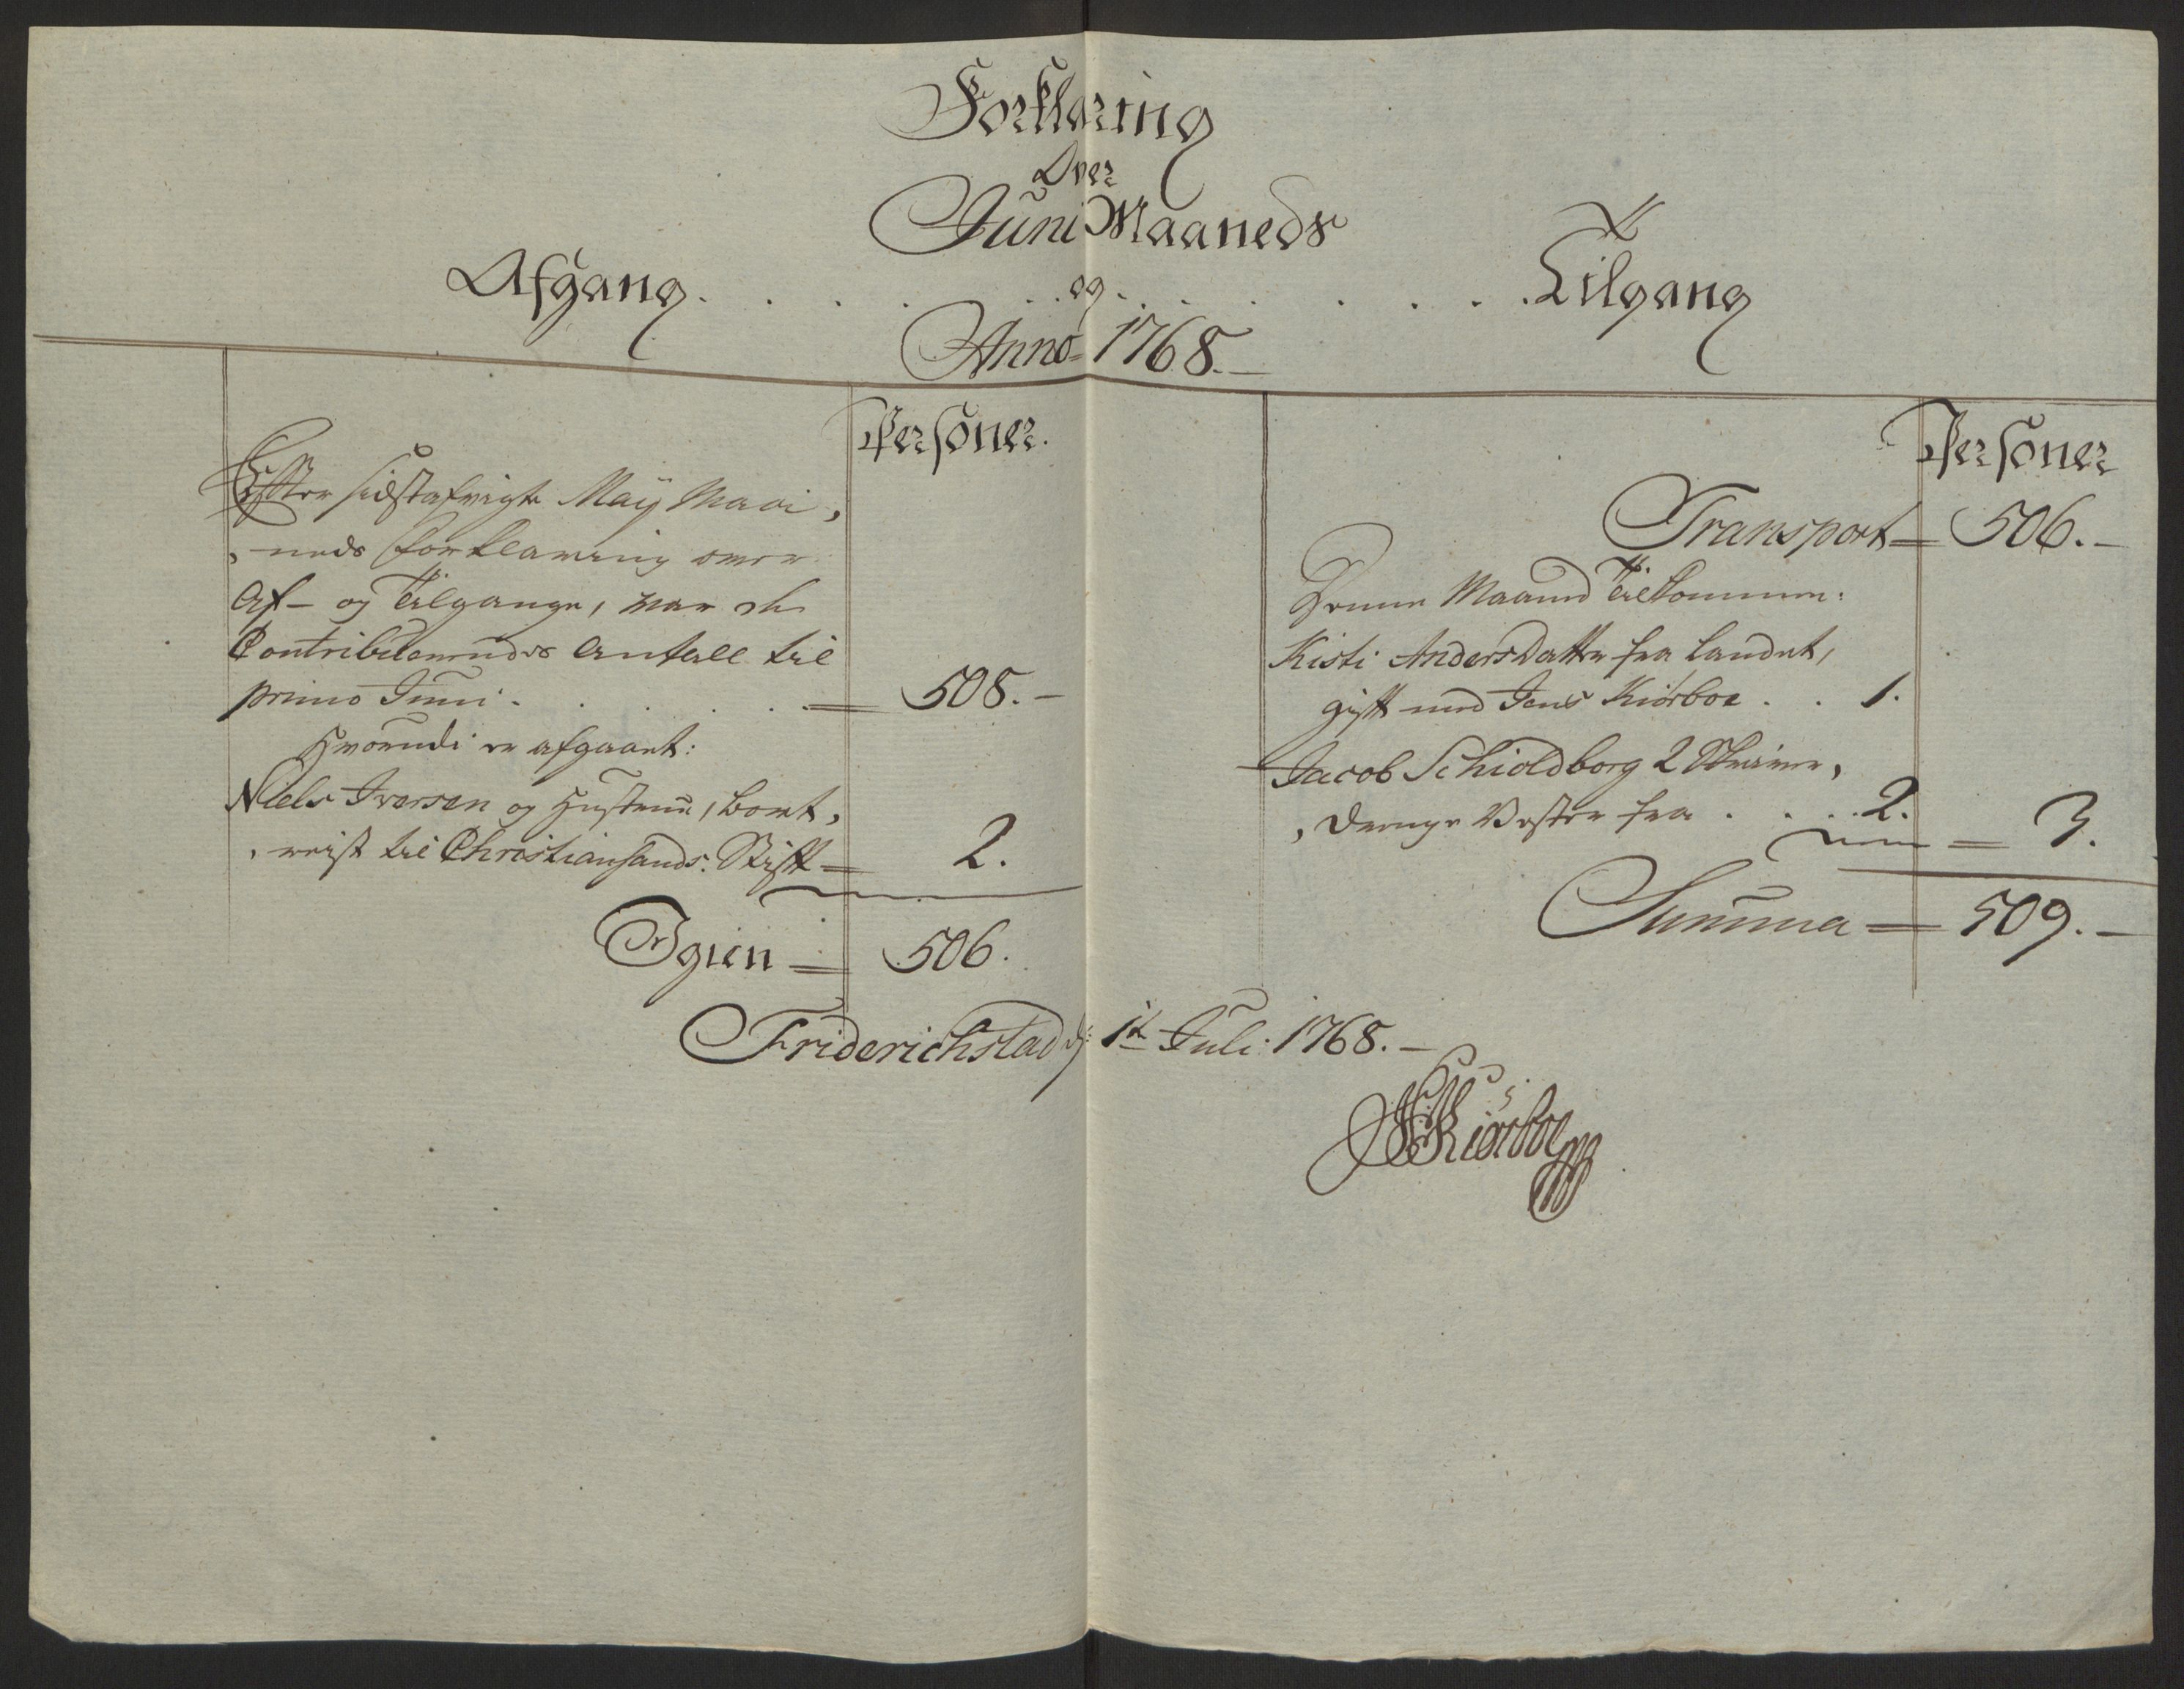 Forklaring
Over
Juni Maaneds
Afgang . . . . . . og . . . . . . . Tilgang
Anno 1768.
Personer.
Efter sidstafvigte Maij Maa¬
¬neds Forklaring over
Af- og Tilgange, var de
Contribuerendes Antall til
primo Juni . . . . . = 508.
Hvorudi er afgaaet:
Niels Iversen og Hustrue, bort¬
¬reist til Christiansands: Stift = 2.
Igien = 506.
Personer
Transport = 506.
Denne Maaned Tilkommen:
Kisti Andersdatter fra Landet,
gift med Jens Kiørboe . . 1.
Jacob Schioldborg 2
Drenge Poster fra . . . . 2.
= 3.
Summa = 509.
Friderichstad d: 1te Juli: 1768.
Kiørboe